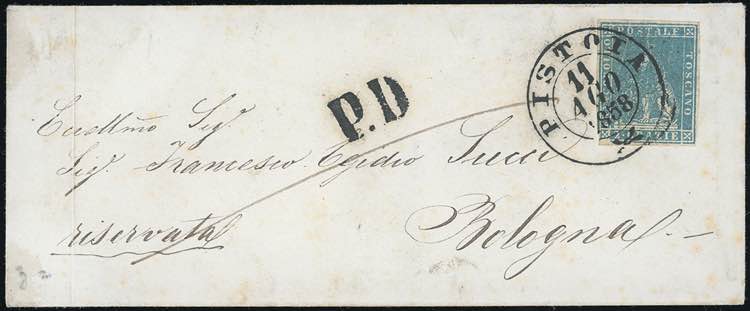 FRANCOBOLLO POSTALE TOSCANO
2 CRAZIE
PISTOIA
11
AGO
1858
P.D
Eccellmo Sigr.
Sigr. Francesco Egidio Succi
riservata
Bologna